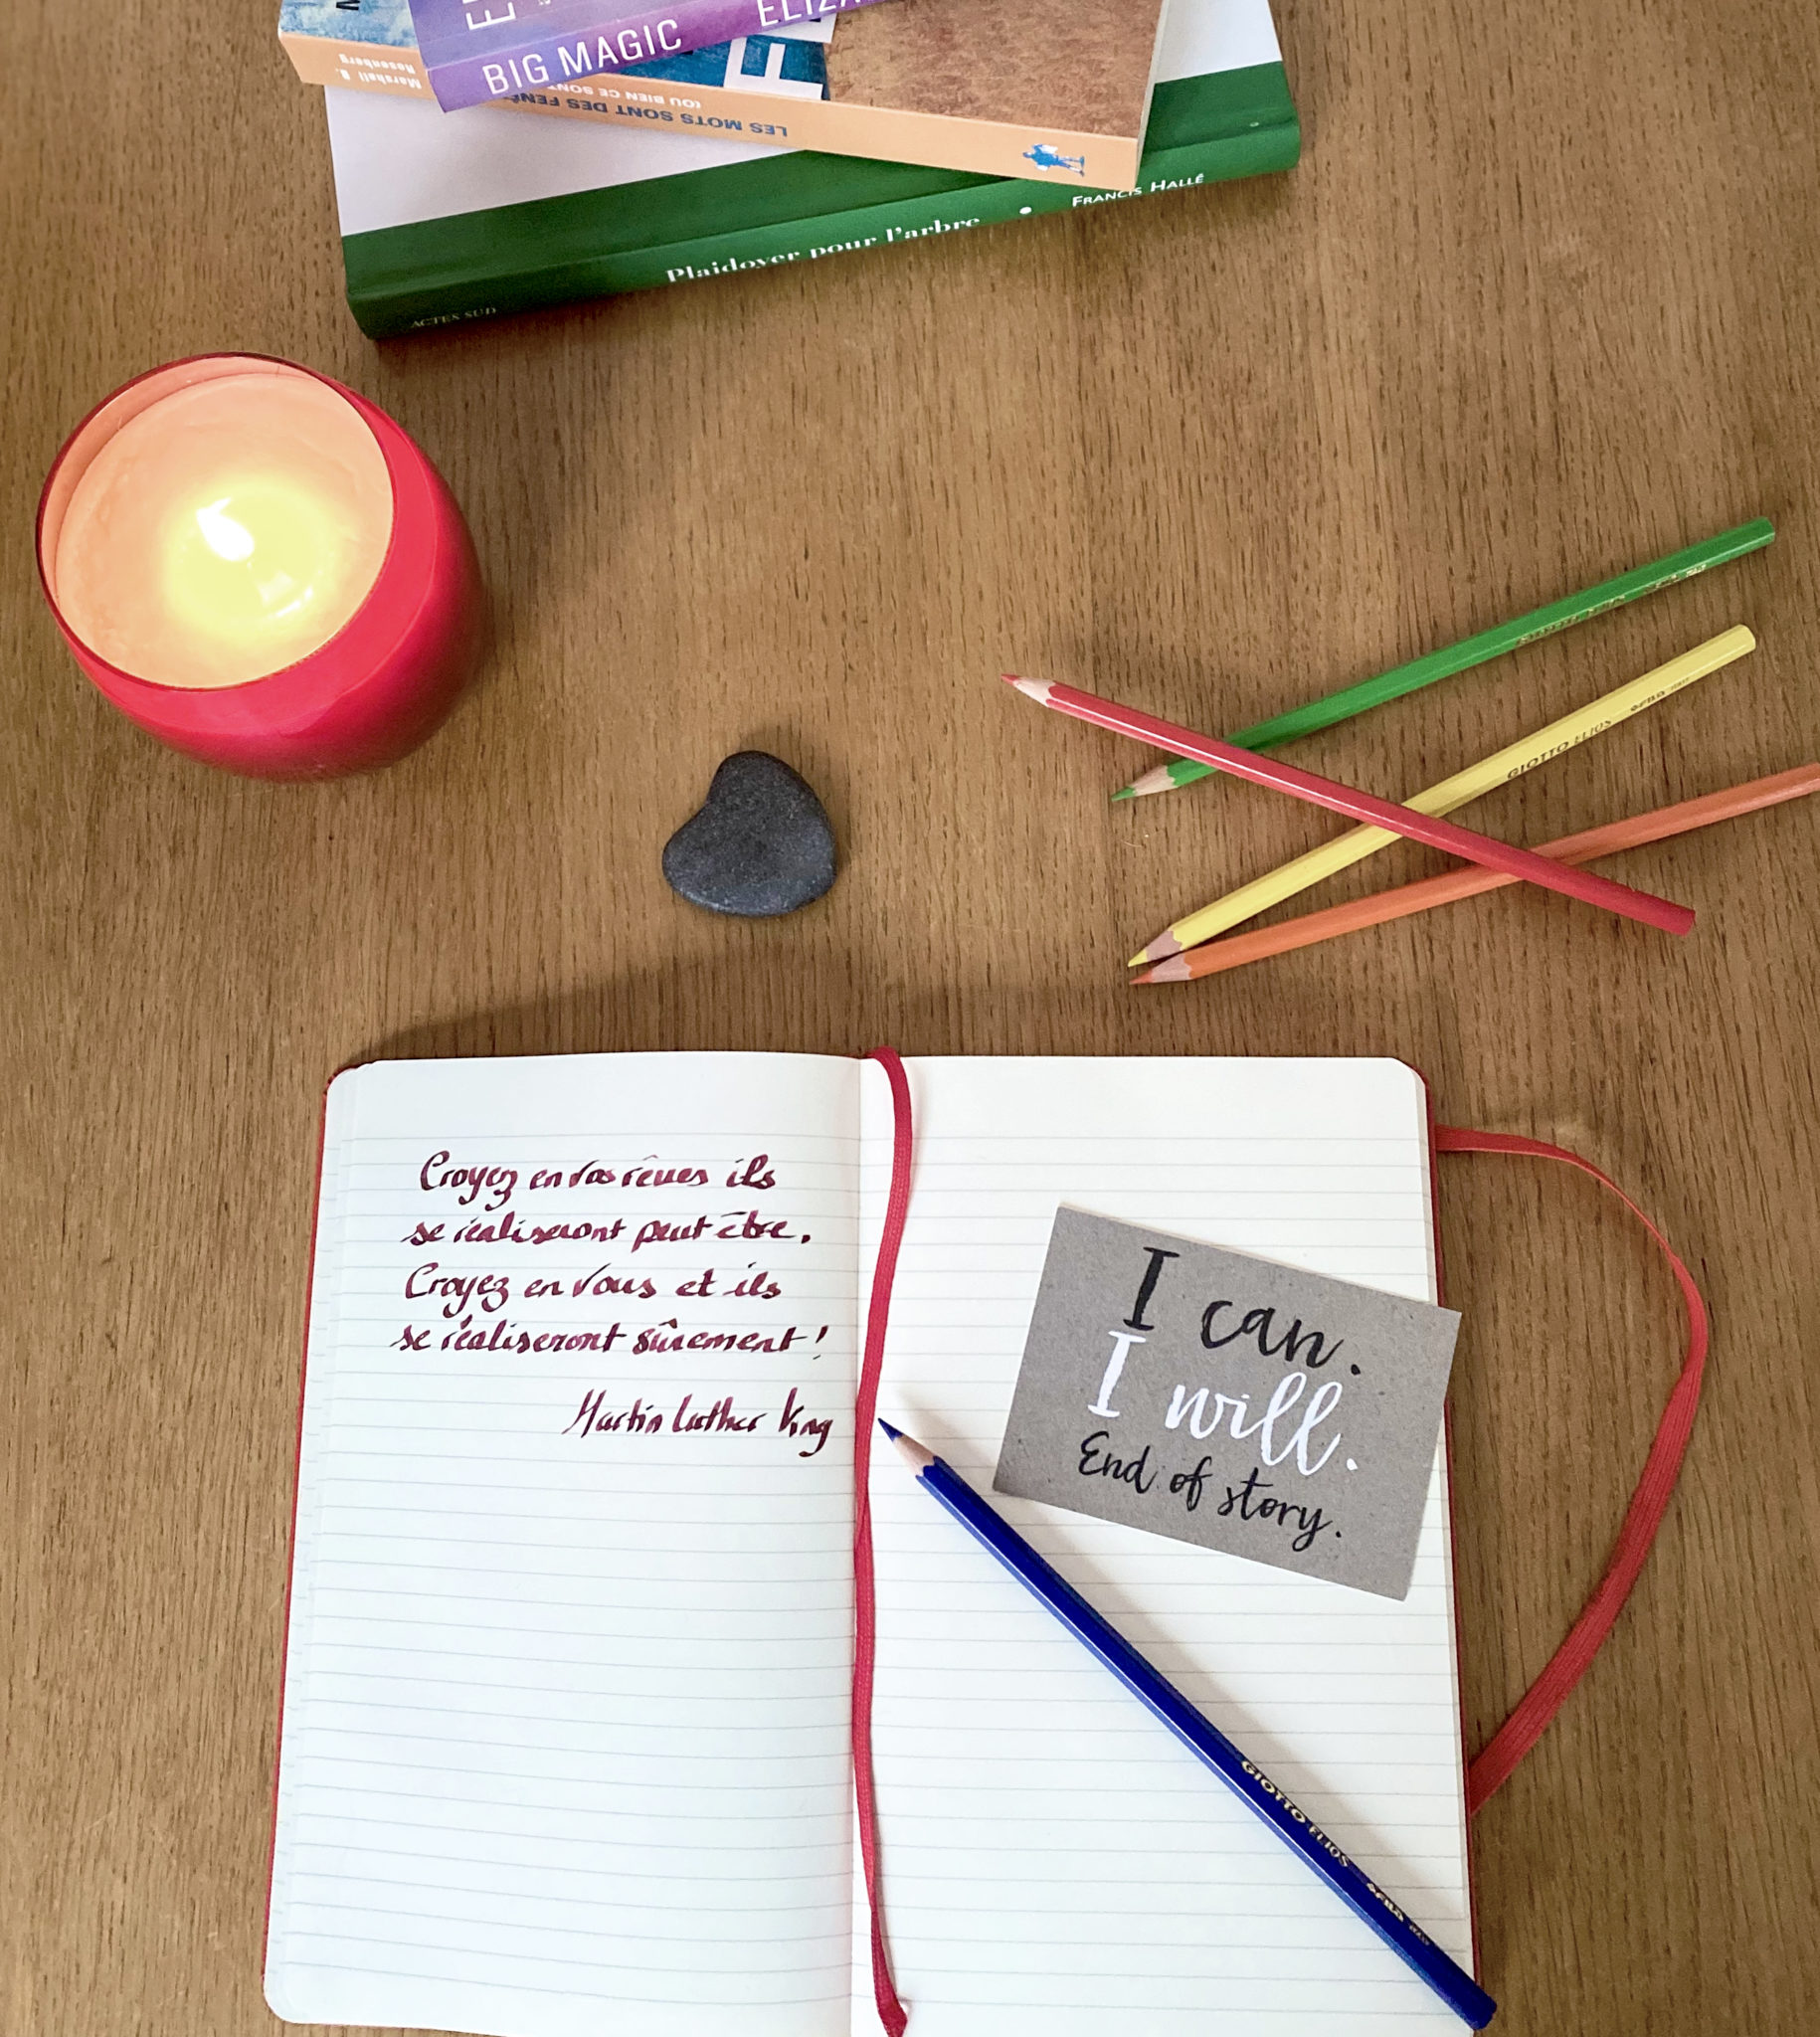 BIG MAGIC
Marshall B.
Rosenberg
(OU BIEN CE SONT
LES MOTS SONT DES FENÊ
Plaidoyer pour l'arbre • FRANCIS HALLÉ
ACTES SUD
GIOTTO ELIOS
Croyez en vos rêves ils
se réaliseront peut être.
Croyez en vous et ils
se réaliseront sûrement !
Martin Luther King
I can.
I will.
End of story.
GIOTTO ELIOS